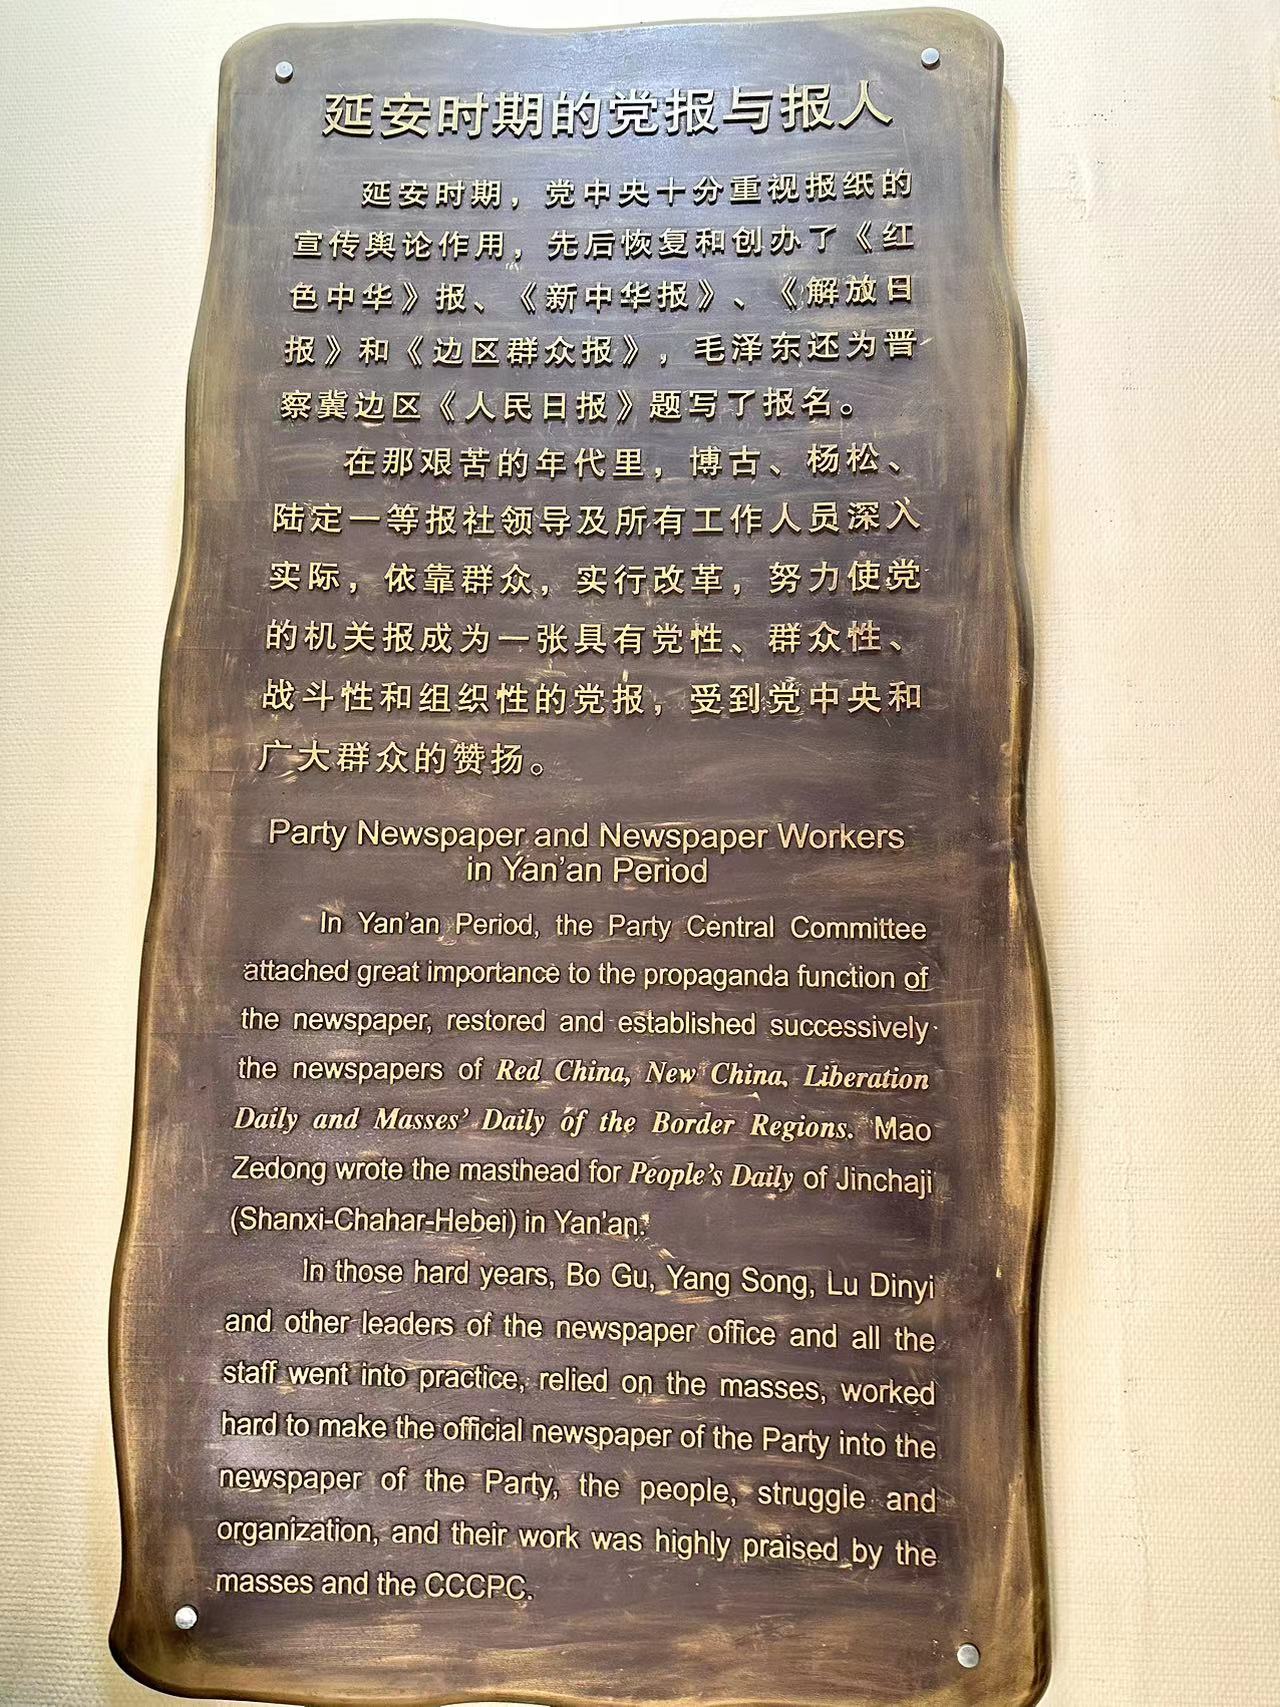 延安时期的党报与报人
延安时期，党中央十分重视报纸的
宣传舆论作用，先后恢复和创办了《红
色中华》报、《新中华报》、《解放日
报》和《边区群众报》，毛泽东还为晋
察冀边区《人民日报》题写了报名。
在那艰苦的年代里，博古、杨松、
陆定一等报社领导及所有工作人员深入
实际，依靠群众，实行改革，努力使党
的机关报成为一张具有党性、群众性、
战斗性和组织性的党报，受到党中央和
广大群众的赞扬。
Party Newspaper and Newspaper Workers
in Yan'an Period
In Yan'an Period, the Party Central Committee
attached great importance to the propaganda function of
the newspaper, restored and established successively
the newspapers of Red China, New China, Liberation
Daily and Masses' Daily of the Border Regions. Mao
Zedong wrote the masthead for People's Daily of Jinchaji
(Shanxi-Chahar-Hebei) in Yan'an.
In those hard years, Bo Gu, Yang Song, Lu Dinyi
and other leaders of the newspaper office and all the
staff went into practice, relied on the masses, worked
hard to make the official newspaper of the Party into the
newspaper of the Party, the people, struggle and
organization, and their work was highly praised by the
masses and the CCCPC.